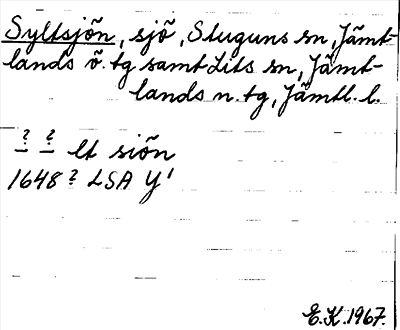 Syltsjön, sjö, Stuguns sn, Jämt-
lands ö. tg samt Lits sn, Jämt-
lands n. tg, Jämtl. l.
? ? lt siön
1648? LSA Y¹
E.K. 1967.